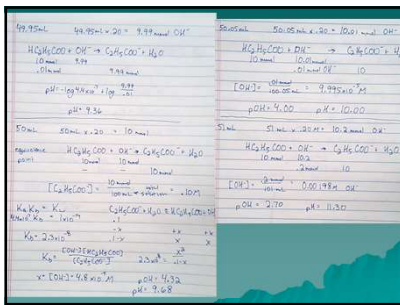 49.95mL 49.95mL x .20 = 9.99 mmol OH⁻
HC₂H₅COO + OH⁻ → C₂H₅COO⁻ + H₂O
10 mmol 9.99
.01 mmol 9.99 mmol
pH = -log 4.4x10 + log 9.99/.01
pH = 9.36
50mL 50mL x .20 = 10 mmol
equivalence point HC₂H₅COO + OH⁻ → C₂H₅COO⁻ + H₂O
10 mmol 10 mmol
- - 10 mmol
[C₂H₅COO⁻] = 10 mmol / 100 mL = .10M
Ka Kb = Kw C₂H₅COO⁻ + H₂O ⇌
Kb = 1x10⁻¹⁴ .1
-x +x +x
Kb = 2.3x10 .1-x x x
Kb = [OH⁻][HC₂H₅COO] / [C₂H₅COO⁻] 2.3x10 = x² / .1-x
x = [OH⁻] = 4.8x10 M pOH = 4.32
pH = 9.68
50.05mL 50.05mL x .20 = 10.01 mmol OH⁻
HC₂H₅COO + OH⁻ → C₂H₅COO⁻ + H₂
10 mmol 10.01 mmol
.01 mmol OH⁻ 10
[OH⁻] = .01 mmol / 100.05 mL = 9.995 M
pOH = 4.00 pH = 10.00
51mL 51 mL x .20M = 10.2 mmol OH⁻
HC₂H₅COO + OH⁻ → C₂H₅COO⁻ + H₂O
10 mmol 10.2
.2 mmol 10
[OH⁻] = .2 mmol / 101 mL = 0.00198M OH⁻
pOH = 2.70 pH = 11.30